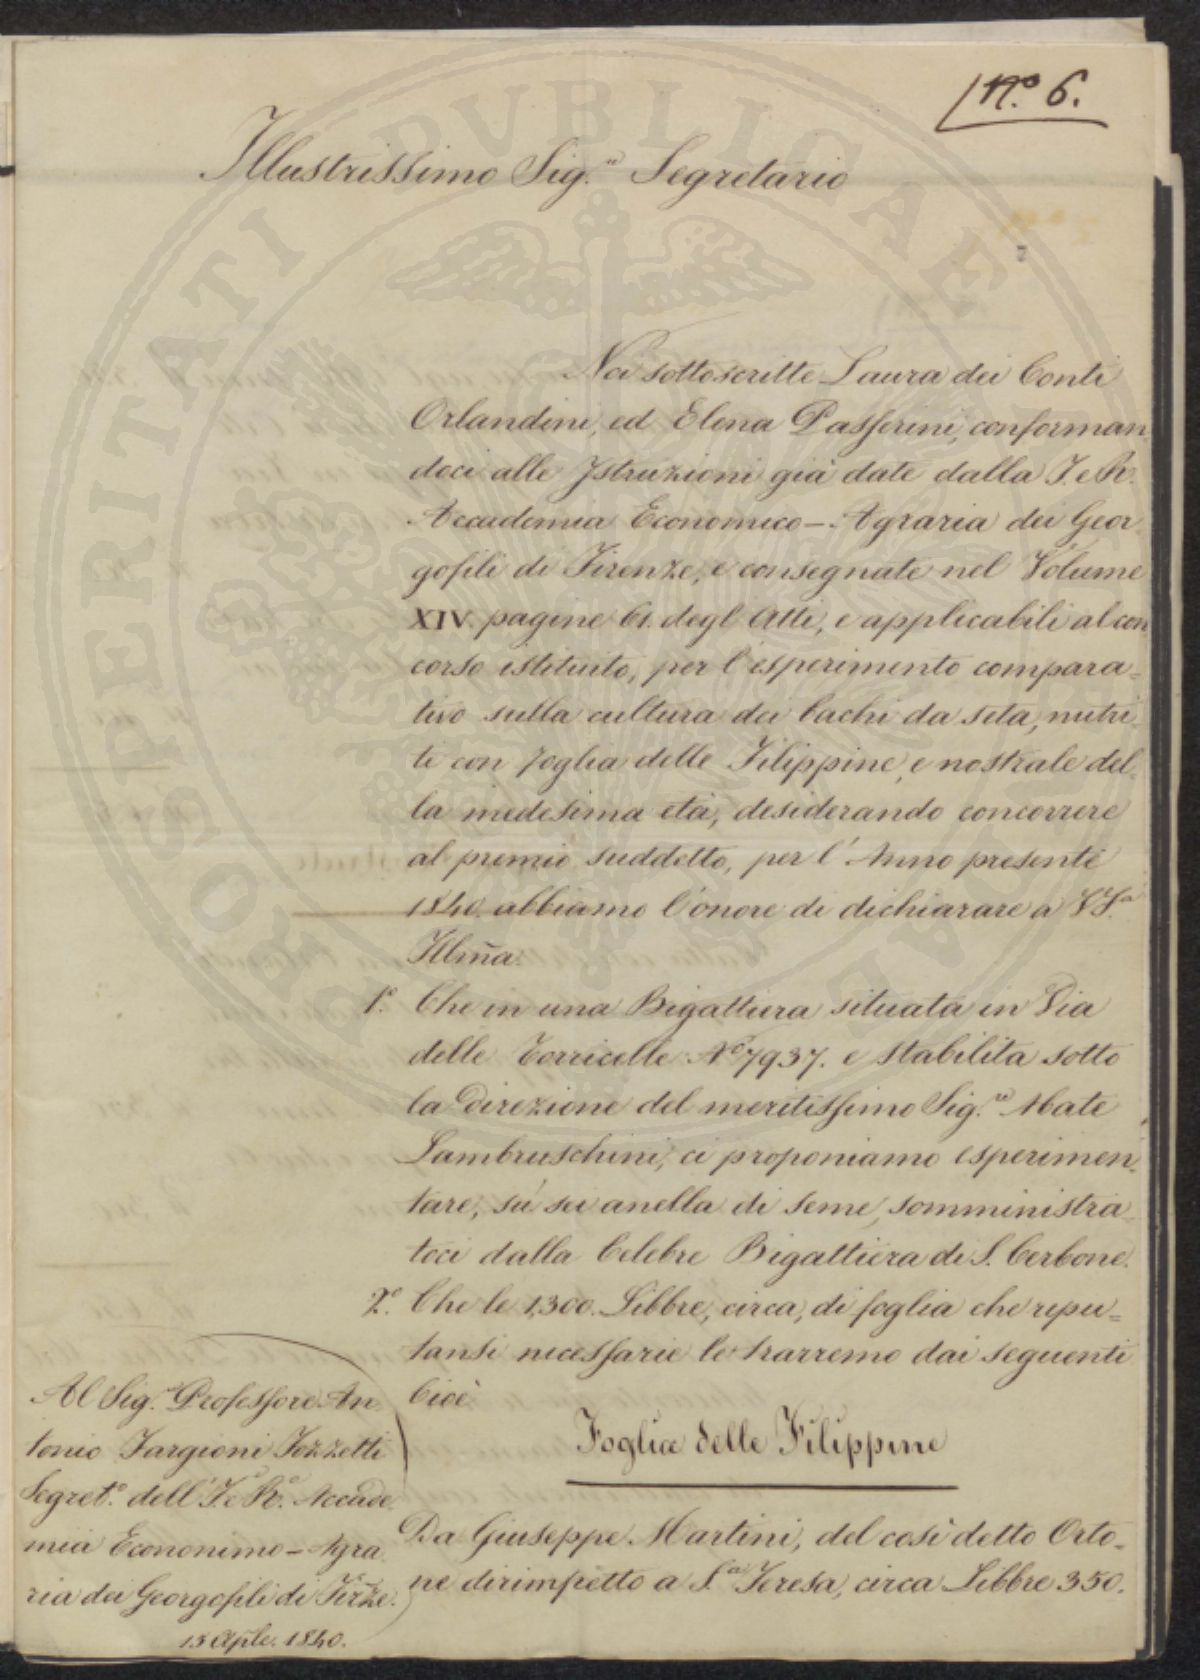 N.º 6.
Illustrissimo Sig.ʳᵉ Segretario
7
Noi sottoscritte Laura dei Conti
Orlandini, ed Elena Passerini, conforman
doci alle Istruzioni già date dalla I. e R.
Accademia Economico-Agraria dei Geor
gofili di Firenze, e consegnate nel Volume
XIV. pagine 61. degl'Atti, e applicabili al con
corso istituito, per l'esperimento compara=
tivo sulla cultura dei bachi da seta, nutri
ti con foglia delle Filippine, e nostrale del=
la medesima età, desiderando concorrere
al premio suddetto, per l'Anno presente
1840. abbiamo l'onore di dichiarare a V.S.ª
Illm̃a.
1.º Che in una Bigattiera situata in Via
delle Torricelle Nº 7937. e stabilita sotto
la Direzione del meritissimo Sig.ʳᵉ Abate
Lambruschini, ci proponiamo esperimen=
tare, sù sei anella di seme, somministra
toci dalla Celebre Bigattiera di S. Cerbone.
2.º Che le 1,300. Libbre, circa, di foglia che repu=
tansi necessarie le trarremo dai seguenti
Cioè
Foglia delle Filippine
Da Giuseppe Martini, del così detto Orto=
ne dirimpetto a S.ª Teresa, circa Libbre 350.
Al Sig.ʳᵉ Professore An
tonio Targioni Tozzetti
Segret.º dell'I. e R. Accade
mia Econonimo-Agra
ria dei Georgofili di Firze.
15 Aple. 1840.
PROSPERITATI PUBLICAE AUGENDAE